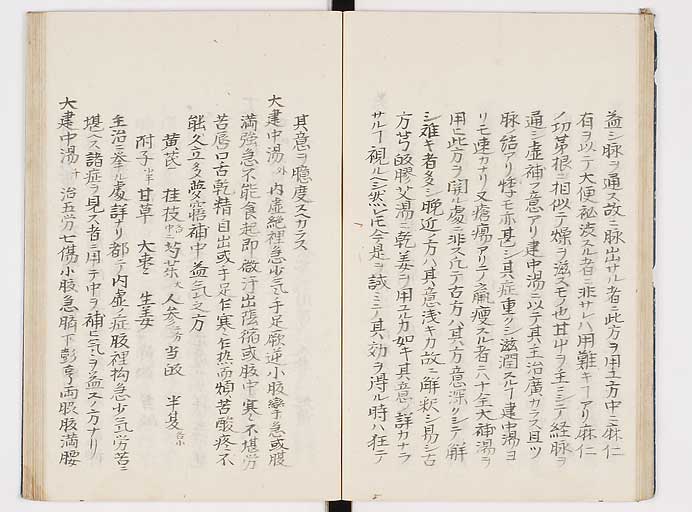 益シ脉ヲ通ス故ニ脉出サル者ニ此方ヲ用ユ方中ニ麻仁
有ヲ以テ大便秘渋スル者ニ非サレハ用難キーアリ麻仁
ノ切茅根ニ相似テ燥ヲ滋スモノ也其中ヲ主ニシテ経脉ヲ
通シ虚補フ意アリ建中湯ニ以テ其主治廣カラス且ツ
脉ノ結アリ悸モ亦甚シ其症重クシ滋潤スルー建中湯ヨ
リモ速カナリ又瘡瘍アリテノ羸痩スル者ニ八十全大補湯ヲ
用ヒ此方ヲ用ル處ニ非ス凢テ古方ハ其方意深クシテ解
シ難キ者多シ晩近ノ方ハ其意浅キカ故ニ解釈シ易シ古
方芎皈膠艾湯ニ乾姜ヲ用ユルカ如キ其意詳カナラ
サルー視ルヘシ然レ𪜈今是ヲ試ミテ其効ヲ得ル時ハ狂テ
其意ヲ臆度スカラス
大建中湯 外 内虚絶裡急少気手足厥逆小腹攣急或腹
満弦急不能食起即微汗出陰縮或腹中寒不堪労
苦唇口舌乾精自出或手足乍寒乍热而煩苦酸疼不
能久立多夢寤補中益气之方
黄芪 桂枝 芍薬 大 人参 当皈 半夏
附子 半 甘草 大棗 生姜
主治ニ挙ル處詳ナリ都テ内虚ノ症腹裡拘急少気労苦ニ
堪ヘス諸症ヲ見ス者ニ用テ中ヲ補ヒ气ヲ益スノ方ナリ
大建中湯 千 治五労七傷小腹急臍下彭亨両脇腹満腰